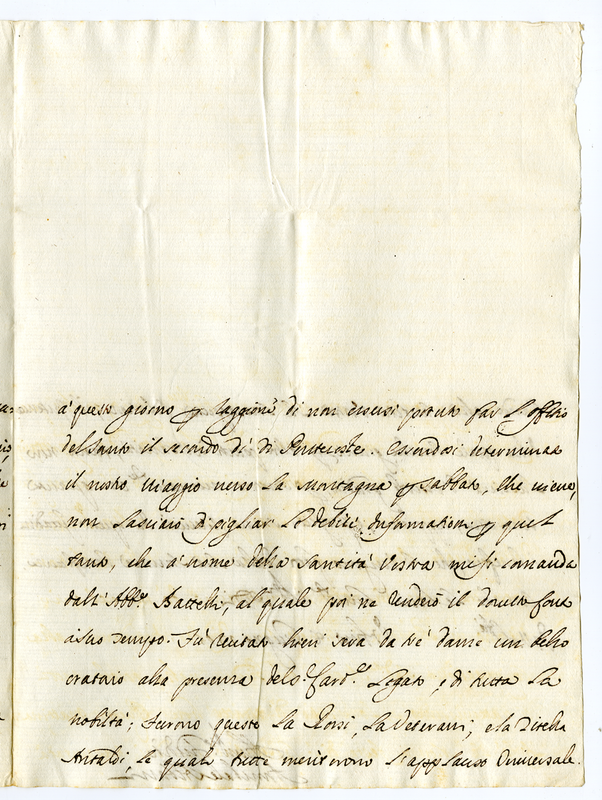 à questo giorno p laggione di non essersi potuto far l'offitio
del santo il secondo dì di Pentecoste. Essendosi determinato
il nostro viaggio verso la montagna p sabbato, che viene,
non lasciarò di pigliar le debite informationi p quel
tanto, che à nome della Santità Vostra mi si comanda
dall' Abb.e Battelli, al quale poi ne renderò il dovuto conto
à suo tempo. Fù recitato hieri sera da trè dame un bello
oratorio alla presenza del s.r Card.le Legato, e di tutta la
nobiltà; furono queste la Rossi, la Veterani, e la Zitella
Antaldi, le quali tutte meritorono l'applauso Universale.